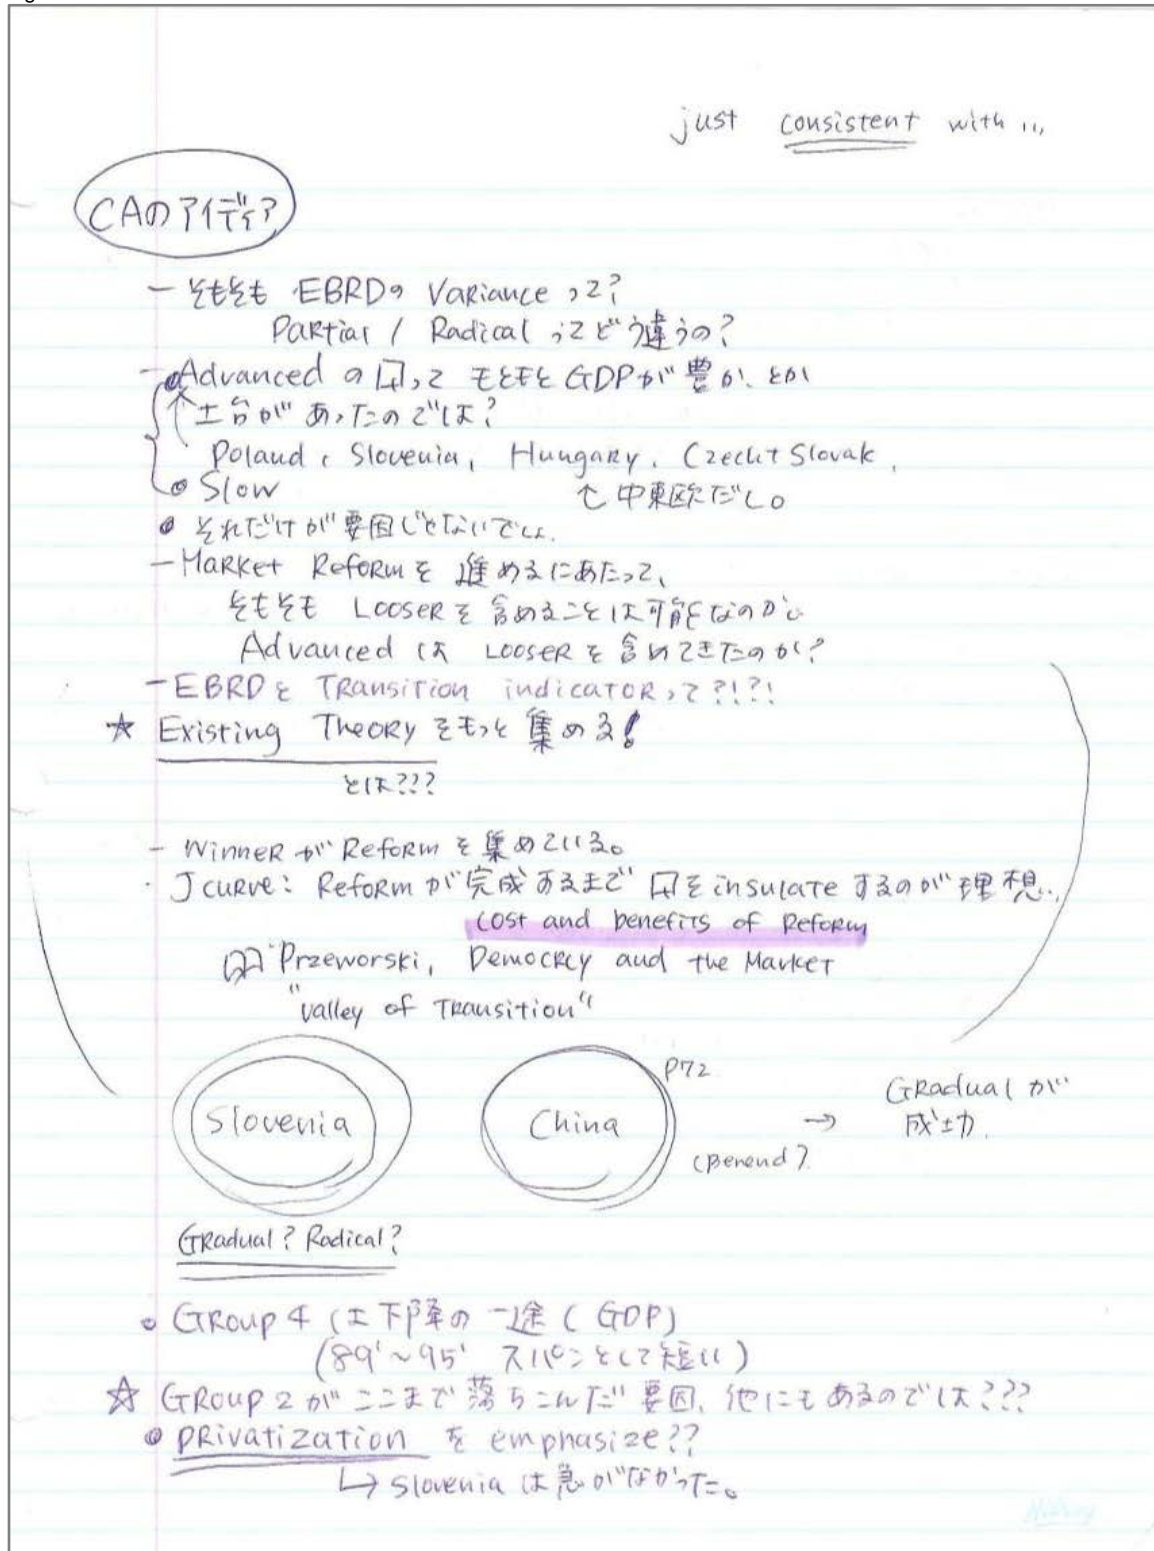 just consistent with ...
CAのアイディア
- そもそも EBRDの Variance って?
Partial / Radical ってどう違うの?
- Advanced の国って もともと GDPが豊か、とか
土台が あったのでは?
Poland, Slovenia, Hungary, Czech+Slovak,
Slow ↑ 中東欧だし。
それだけが要因じゃないでしょ.
- Market Reform を 進めるにあたって、
そもそも Looser を 含めることは可能なのか。
Advanced は Looser を 含めてきたのか?
- EBRDと Transition indicator って?!?!
☆ Existing Theory をもっと 集める!
とは???
- Winner が Reform を 集めている。
・ J curve: Reform が完成するまで 国を insulate するのが理想..
cost and benefits of Reform
Przeworski, Democrcy and the Market
"valley of Transition"
Slovenia China P72 → Gradual が
成功.
(Berend?
Gradual? Radical?
Group 4 は下降の一途 (GDP)
(89'~95' スパンとして短い)
☆ Group 2 がここまで落ちこんだ要因、他にもあるのでは???
Privatization を emphasize??
↳ Slovenia は急がなかった。